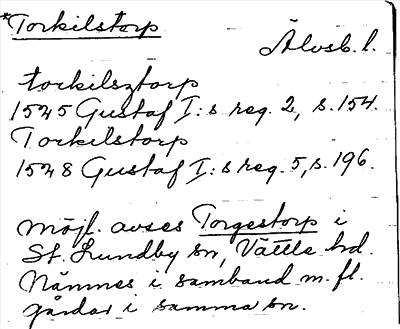 *Torkilstorp
Älvsb. l.
torkilsztorp
1525 Gustaf I:s reg. 2, s. 154.
Torkilstorp
1528 Gustaf I:s reg. 5, s. 196.
Möjl. avses Torgestorp i
St. Lundby sn, Vättle hd.
Nämnes i samband m. fl.
gårdar i samma sn.